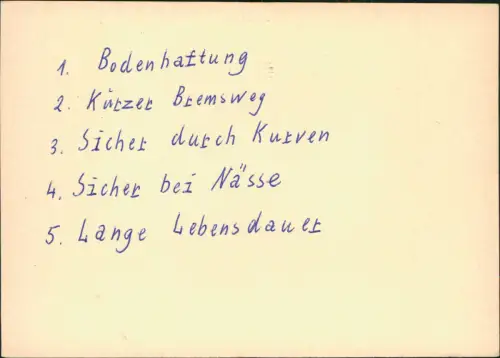 1. Bodenhaftung
2. Kürzer Bremsweg
3. Sicher durch Kurven
4. Sicher bei Nässe
5. Lange Lebensdauer